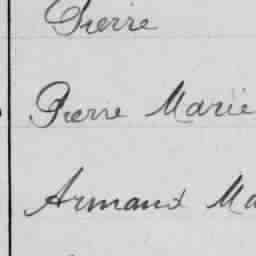 Pierre
Pierre Marie
Armand Ma